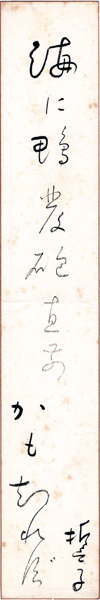 海に鴨発砲直前かも知れず
誓子